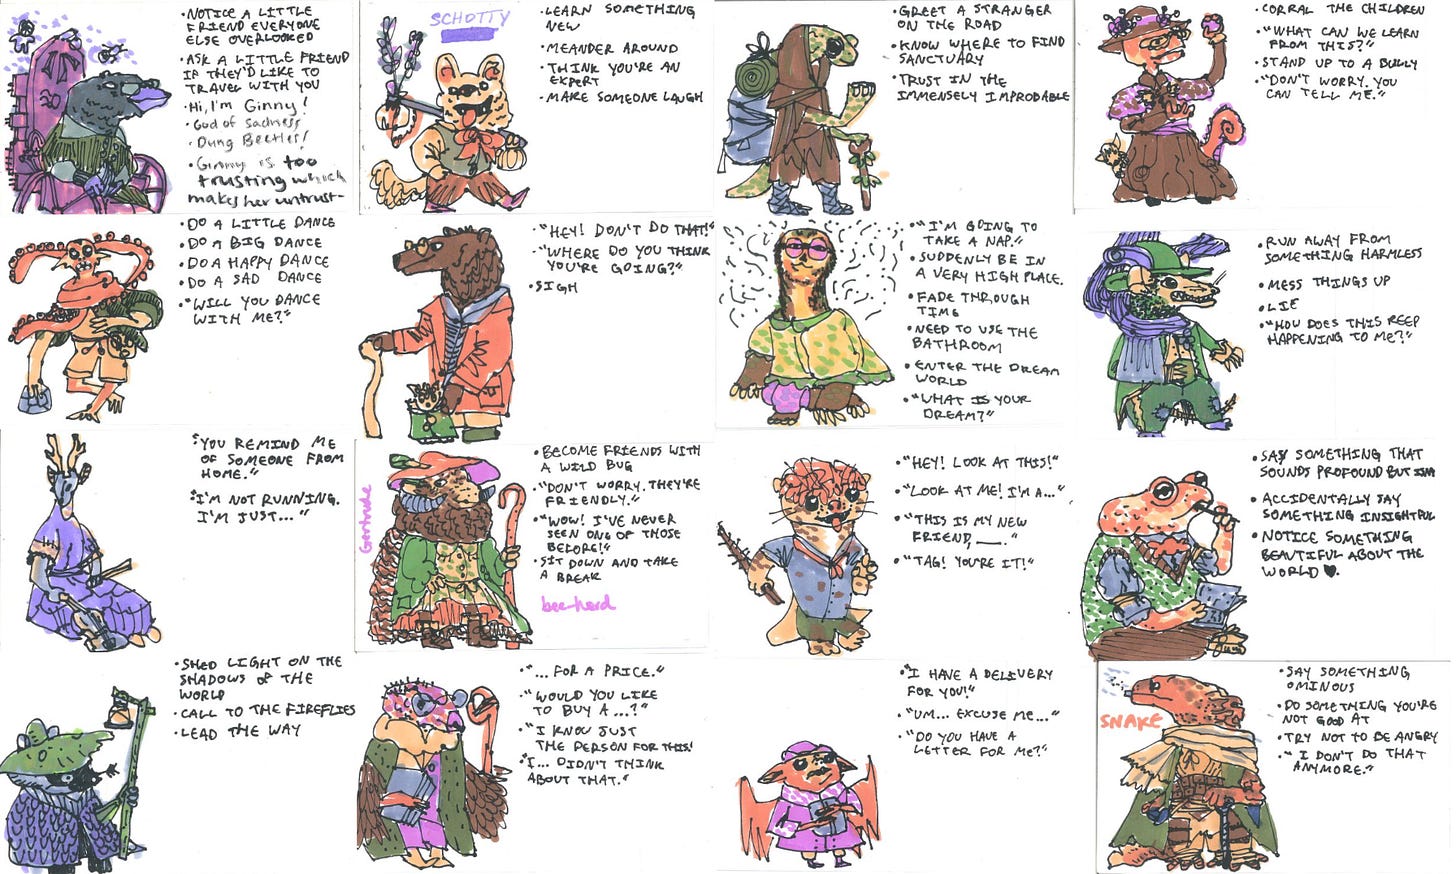 • NOTICE A LITTLE
FRIEND EVERYONE
ELSE OVERLOOKED
• ASK A LITTLE FRIEND
IF THEY'D LIKE TO
TRAVEL WITH YOU
• Hi, I'm Ginny!
• God of Sadness
• Dung Beetles!
• Ginny is too
trusting which
makes her untrust-
SCHOTTY
• LEARN SOMETHING
NEW
• MEANDER AROUND
• THINK YOU'RE AN
EXPERT
• MAKE SOMEONE LAUGH
• GREET A STRANGER
ON THE ROAD
• KNOW WHERE TO FIND
SANCTUARY
• TRUST IN THE
IMMENSELY IMPROBABLE
• CORRAL THE CHILDREN
• "WHAT CAN WE LEARN
FROM THIS?"
• STAND UP TO A BULLY
• "DON'T WORRY. YOU
CAN TELL ME."
• DO A LITTLE DANCE
• DO A BIG DANCE
• DO A HAPPY DANCE
• DO A SAD DANCE
• "WILL YOU DANCE
WITH ME?"
• "HEY! DON'T DO THAT!"
• "WHERE DO YOU THINK
YOU'RE GOING?"
• SIGH
• "I'M GOING TO
TAKE A NAP."
• SUDDENLY BE IN
A VERY HIGH PLACE.
• FADE THROUGH
TIME
• NEED TO USE THE
BATHROOM
• ENTER THE DREAM
WORLD
• "WHAT IS YOUR
DREAM?"
• RUN AWAY FROM
SOMETHING HARMLESS
• MESS THINGS UP
• LIE
• "HOW DOES THIS KEEP
HAPPENING TO ME?"
• "YOU REMIND ME
OF SOMEONE FROM
HOME."
• "I'M NOT RUNNING.
I'M JUST..."
Gertrude
• BECOME FRIENDS WITH
A WILD BUG
• "DON'T WORRY. THEY'RE
FRIENDLY."
• "WOW! I'VE NEVER
SEEN ONE OF THOSE
BEFORE!"
• SIT DOWN AND TAKE
A BREAK
bee-herd
• "HEY! LOOK AT THIS!"
• "LOOK AT ME! I'M A..."
• "THIS IS MY NEW
FRIEND, ___."
• "TAG! YOU'RE IT!"
• SAY SOMETHING THAT
SOUNDS PROFOUND BUT
• ACCIDENTALLY SAY
SOMETHING INSIGHTFUL
• NOTICE SOMETHING
BEAUTIFUL ABOUT THE
WORLD ♥.
• SHED LIGHT ON THE
SHADOWS OF THE
WORLD
• CALL TO THE FIREFLIES
• LEAD THE WAY
• "... FOR A PRICE."
• "WOULD YOU LIKE
TO BUY A...?"
• "I KNOW JUST
THE PERSON FOR THIS!
• "I... DIDN'T THINK
ABOUT THAT."
• "I HAVE A DELIVERY
FOR YOU!"
• "UM... EXCUSE ME..."
• "DO YOU HAVE A
LETTER FOR ME?"
SNAKE
• SAY SOMETHING
OMINOUS
• DO SOMETHING YOU'RE
NOT GOOD AT
• TRY NOT TO BE ANGRY
• "I DON'T DO THAT
ANYMORE."